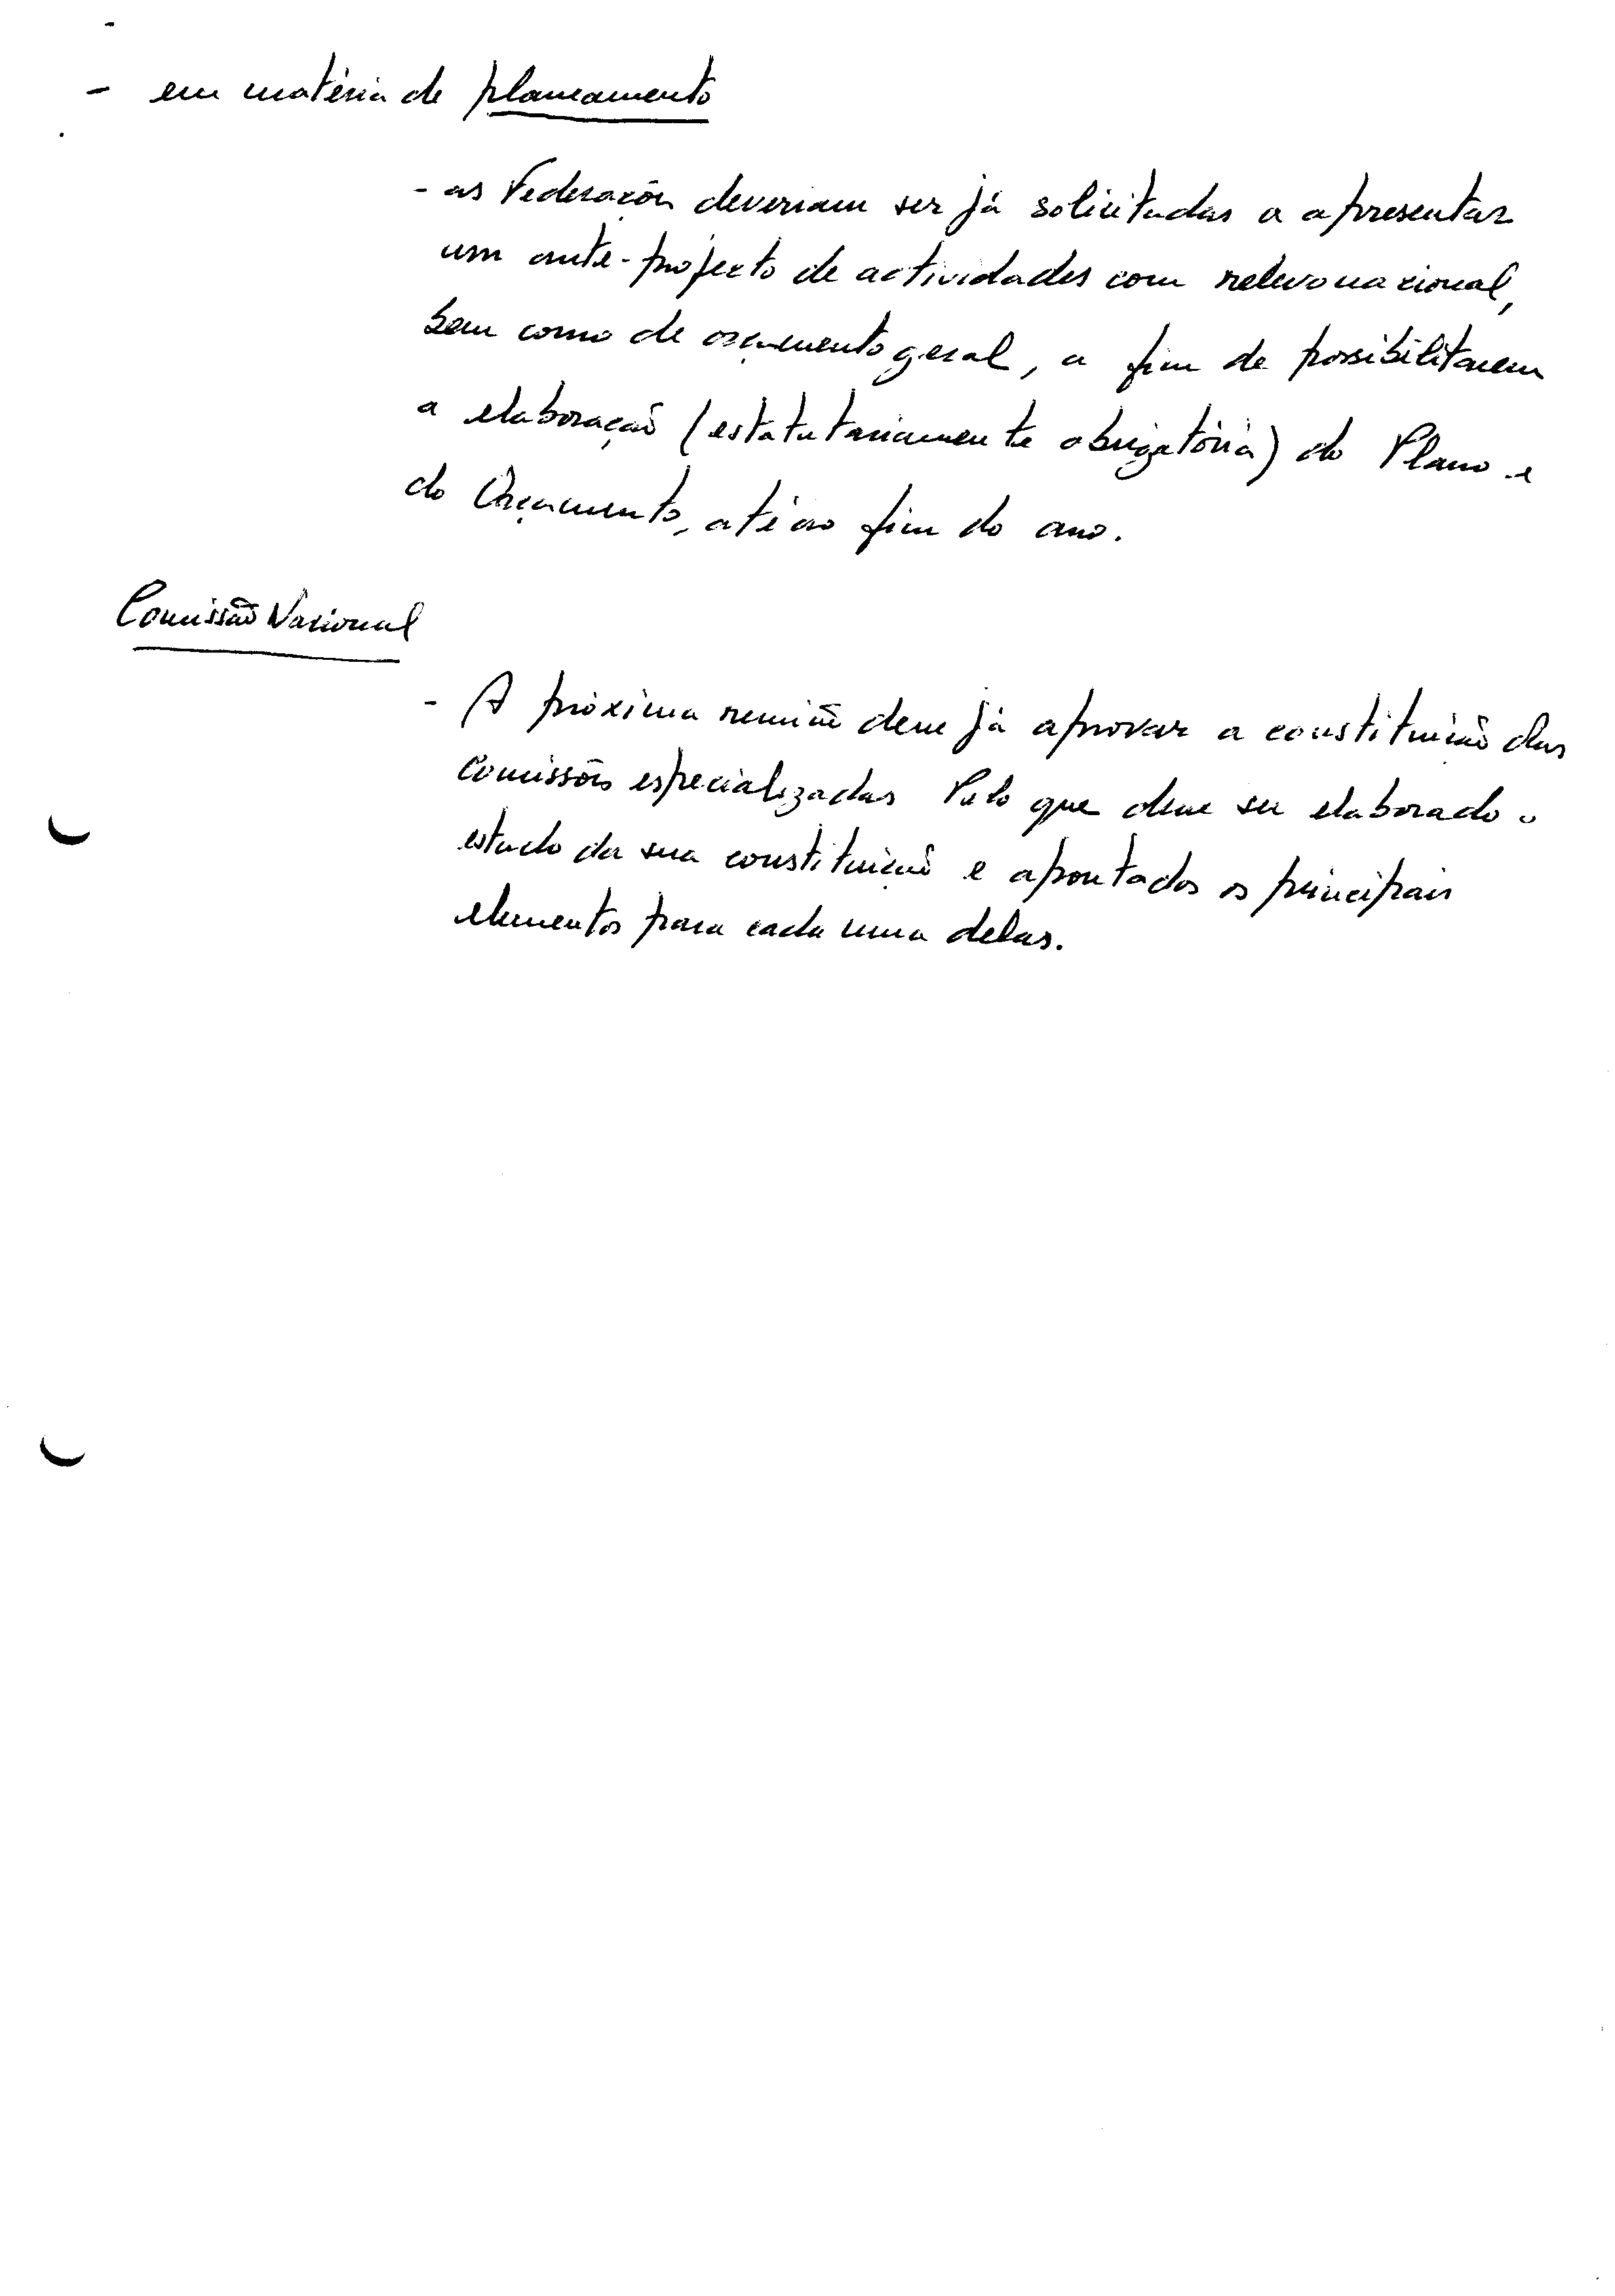 - em matéria de planeamento
- as Federações deveriam ser já solicitadas a apresentar
um ante-projecto de actividades com relevo nacional,
bem como de orçamento geral, a fim de possibilitarem
a elaboração (estatutariamente obrigatória) do Plano e
do Orçamento, até ao fim do ano.
Comissão Nacional
- A próxima reunião deve já aprovar a constituição das
comissões especializadas Pelo que deve ser elaborado o
estudo da sua constituição e apontados os principais
elementos para cada uma delas.